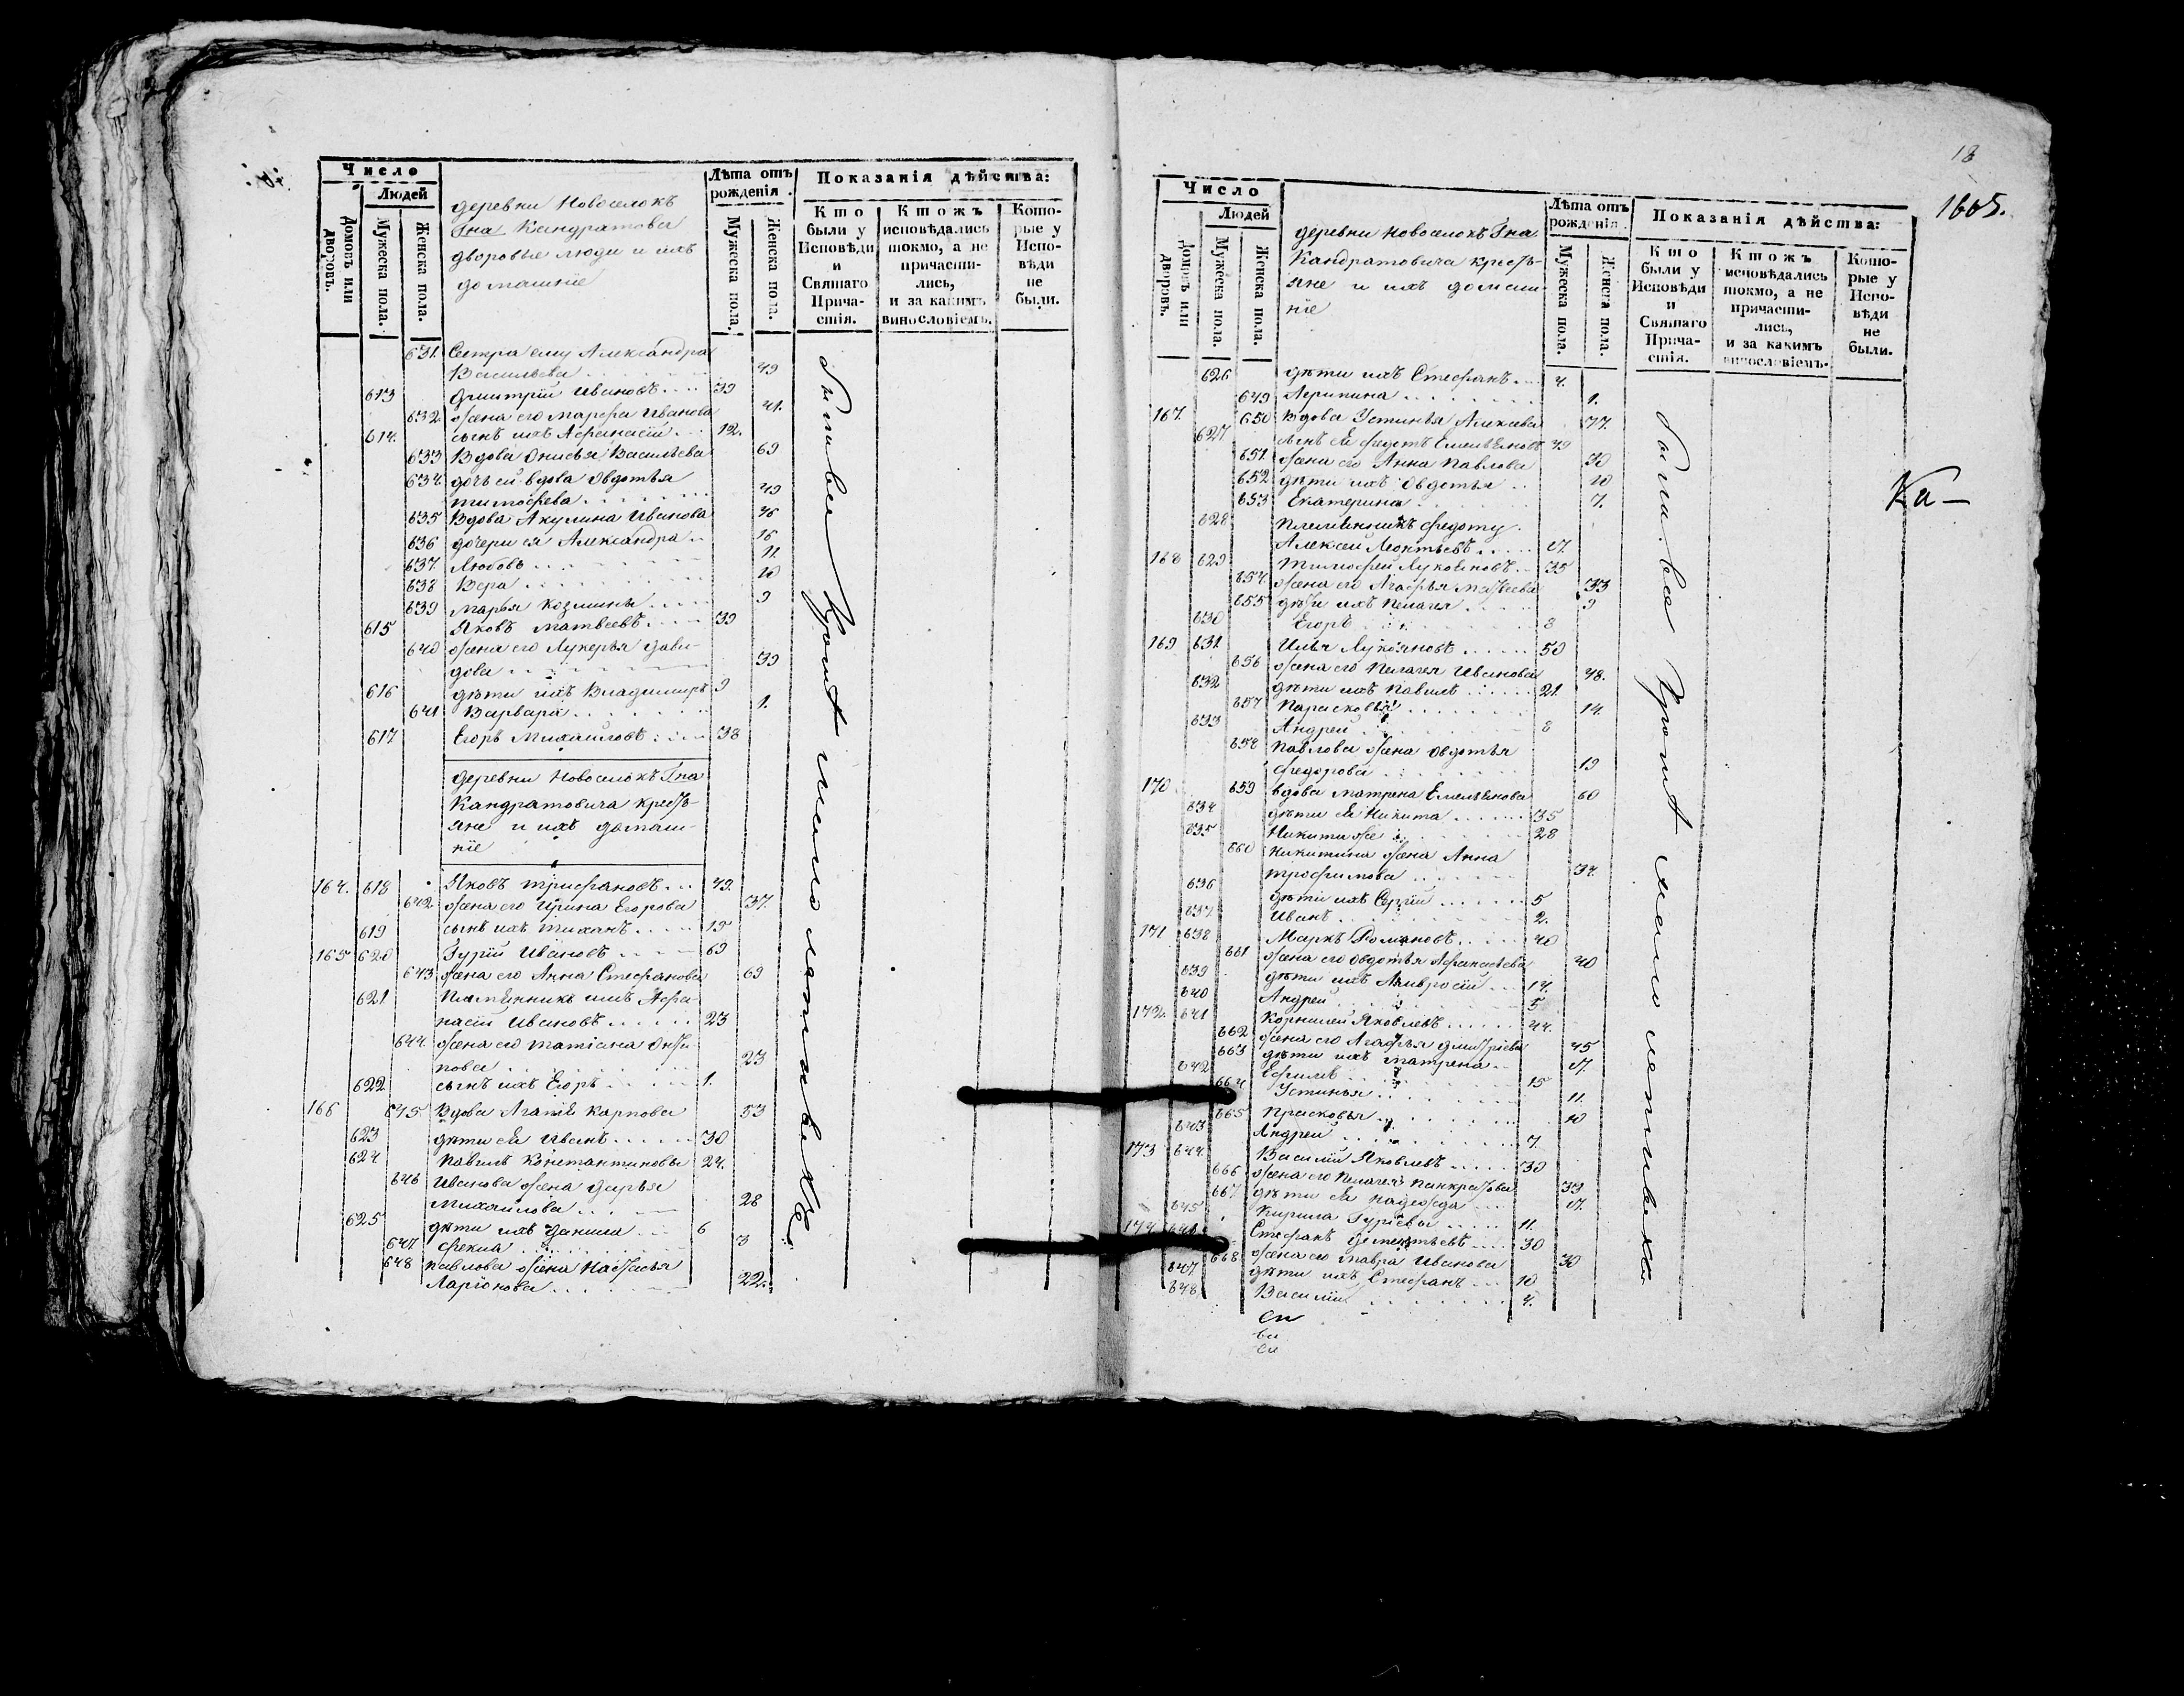 Число
Людей
Домовъ или дворовъ.
Мужеска пола.
Женска пола.
деревни Новоселокъ
Гна Кандратова
дворовые люди и ихъ
домашнїе
Лѣта отъ рожденія
Мужеска пола.
Женска пола.
Показанія дѣйства:
Кто были у Исповѣди и Святаго Прича-стія.
Ктожъ исповѣдались токмо, а не причасти-лись, и за какимъ винословіемъ.
Кото-рые у Испо-вѣди не были.
631. Сестра ему Александра
Васильева 49
613 Дмитрїй Ивановъ 39
632 жена его Марѳа Иванова 41.
614. сынъ ихъ Афанасїй 12.
633 Вдова Онисья Васильева 69
634. дочь ей вдова Овдотья
Тимофеева 49
635 Вдова Акулина Иванова 46
636 дочери ея Александра 16
637. Любовь 11.
638 Вера 10
639 Марья Козмины 9
615 Яковъ Матвеевъ 39
640 жена его Лукерья Дави-
дова 39
616 дѣти ихъ Владимиръ 9
641 Варвара 1.
617 Егоръ Михайловъ 38
деревни Новоселокъ Гна
Кандратовича кресть-
яне и ихъ домаш-
нїе
164. 618 Яковъ Трифановъ 49.
642 жена его Ирина Егорова 37.
619 сынъ ихъ Тиханъ 15
165 620 Гурїй Ивановъ 69
643 жена его Анна Стефанова 69
621 Племянникъ имъ Афа-
насїй Ивановъ 23
644. жена его Татїана
нова 23
622 сынъ ихъ Егоръ 1.
166 645 Вдова Агапїя Карпова 53
623 дѣти ея Иванъ 30
624 Павилъ Константиновы 24.
646 Иванова жена Дарья
Михайлова 28
625 дѣти ихъ Данила 6
647. Фекла 3
648 Павлова жена Настасья
Ларїонова 22.
18
1605.
Число
Людей
Домовъ или дворовъ.
Мужеска пола.
Женска пола.
деревни Новоселокъ Гна
Кандратовича кресть-
яне и ихъ домаш
нїе
Лѣта отъ рожденія
Мужеска пола.
Женска пола.
Показанія дѣйства:
Кто были у Исповѣди и Святаго Прича-стія.
Ктожъ исповѣдались токмо, а не причасти-лись, и за какимъ винословіемъ.
Кото-рые у Испо-вѣди не были.
Ка-
626 дѣти ихъ Стефанъ 4.
649 1.
167. 650 вдова Устинья Алексева 77.
627 сынъ ея Федотъ Емельяновъ 49
651. жена его Анна Павлова 30
652 дѣти ихъ Овдотья 10
653 Екатерина 7.
628 Племянникъ Федоту
Алексей Леонтьевъ 17.
168 629 Тимофей Лукояновъ 35
654 жена его Агафья Матвеева 33
655 дѣти ихъ Пелагея 9
630 Егоръ 8
169 631. Илья Лукояновъ 50
656 жена его Пелагея Иванова 48.
632 дѣти ихъ Павилъ 21.
657 Парасковья 14.
633 Андрей 8
658 Павлова жена Овдотья
Федорова 19
170 659 вдова Матрена Емельянова 60
634 дѣти ея Никита 35
635 Никита же 28
660 Никитина жена Анна
Трофимова 34.
636 дѣти ихъ Сергїй 5
637 Иванъ 2.
171 638 Маркъ Романовъ 40
661 жена его Овдотья Афанасьева 40
639 дѣти ихъ Амвросїй 14.
640 Андрей 5
172. 641 Корнилей Яковлевъ 44.
662 жена его Агафья Дмитрїева 45
663 дѣти ихъ Матрена 17.
642 Ефимъ 15
664 Устинья 11.
665 Прасковья 10
643 Андрей 7.
173 644 Василїй Яковлевъ 30
666 жена его Пелагея Панкратова 33
667 дѣти ея Надежда 17.
645 Кирила Гурїевы 11.
174 646 Стефанъ Дементьевъ 30
668 жена его Мавра Иванова 30
647 дѣти ихъ Стефанъ 10
648 Василїй 4.